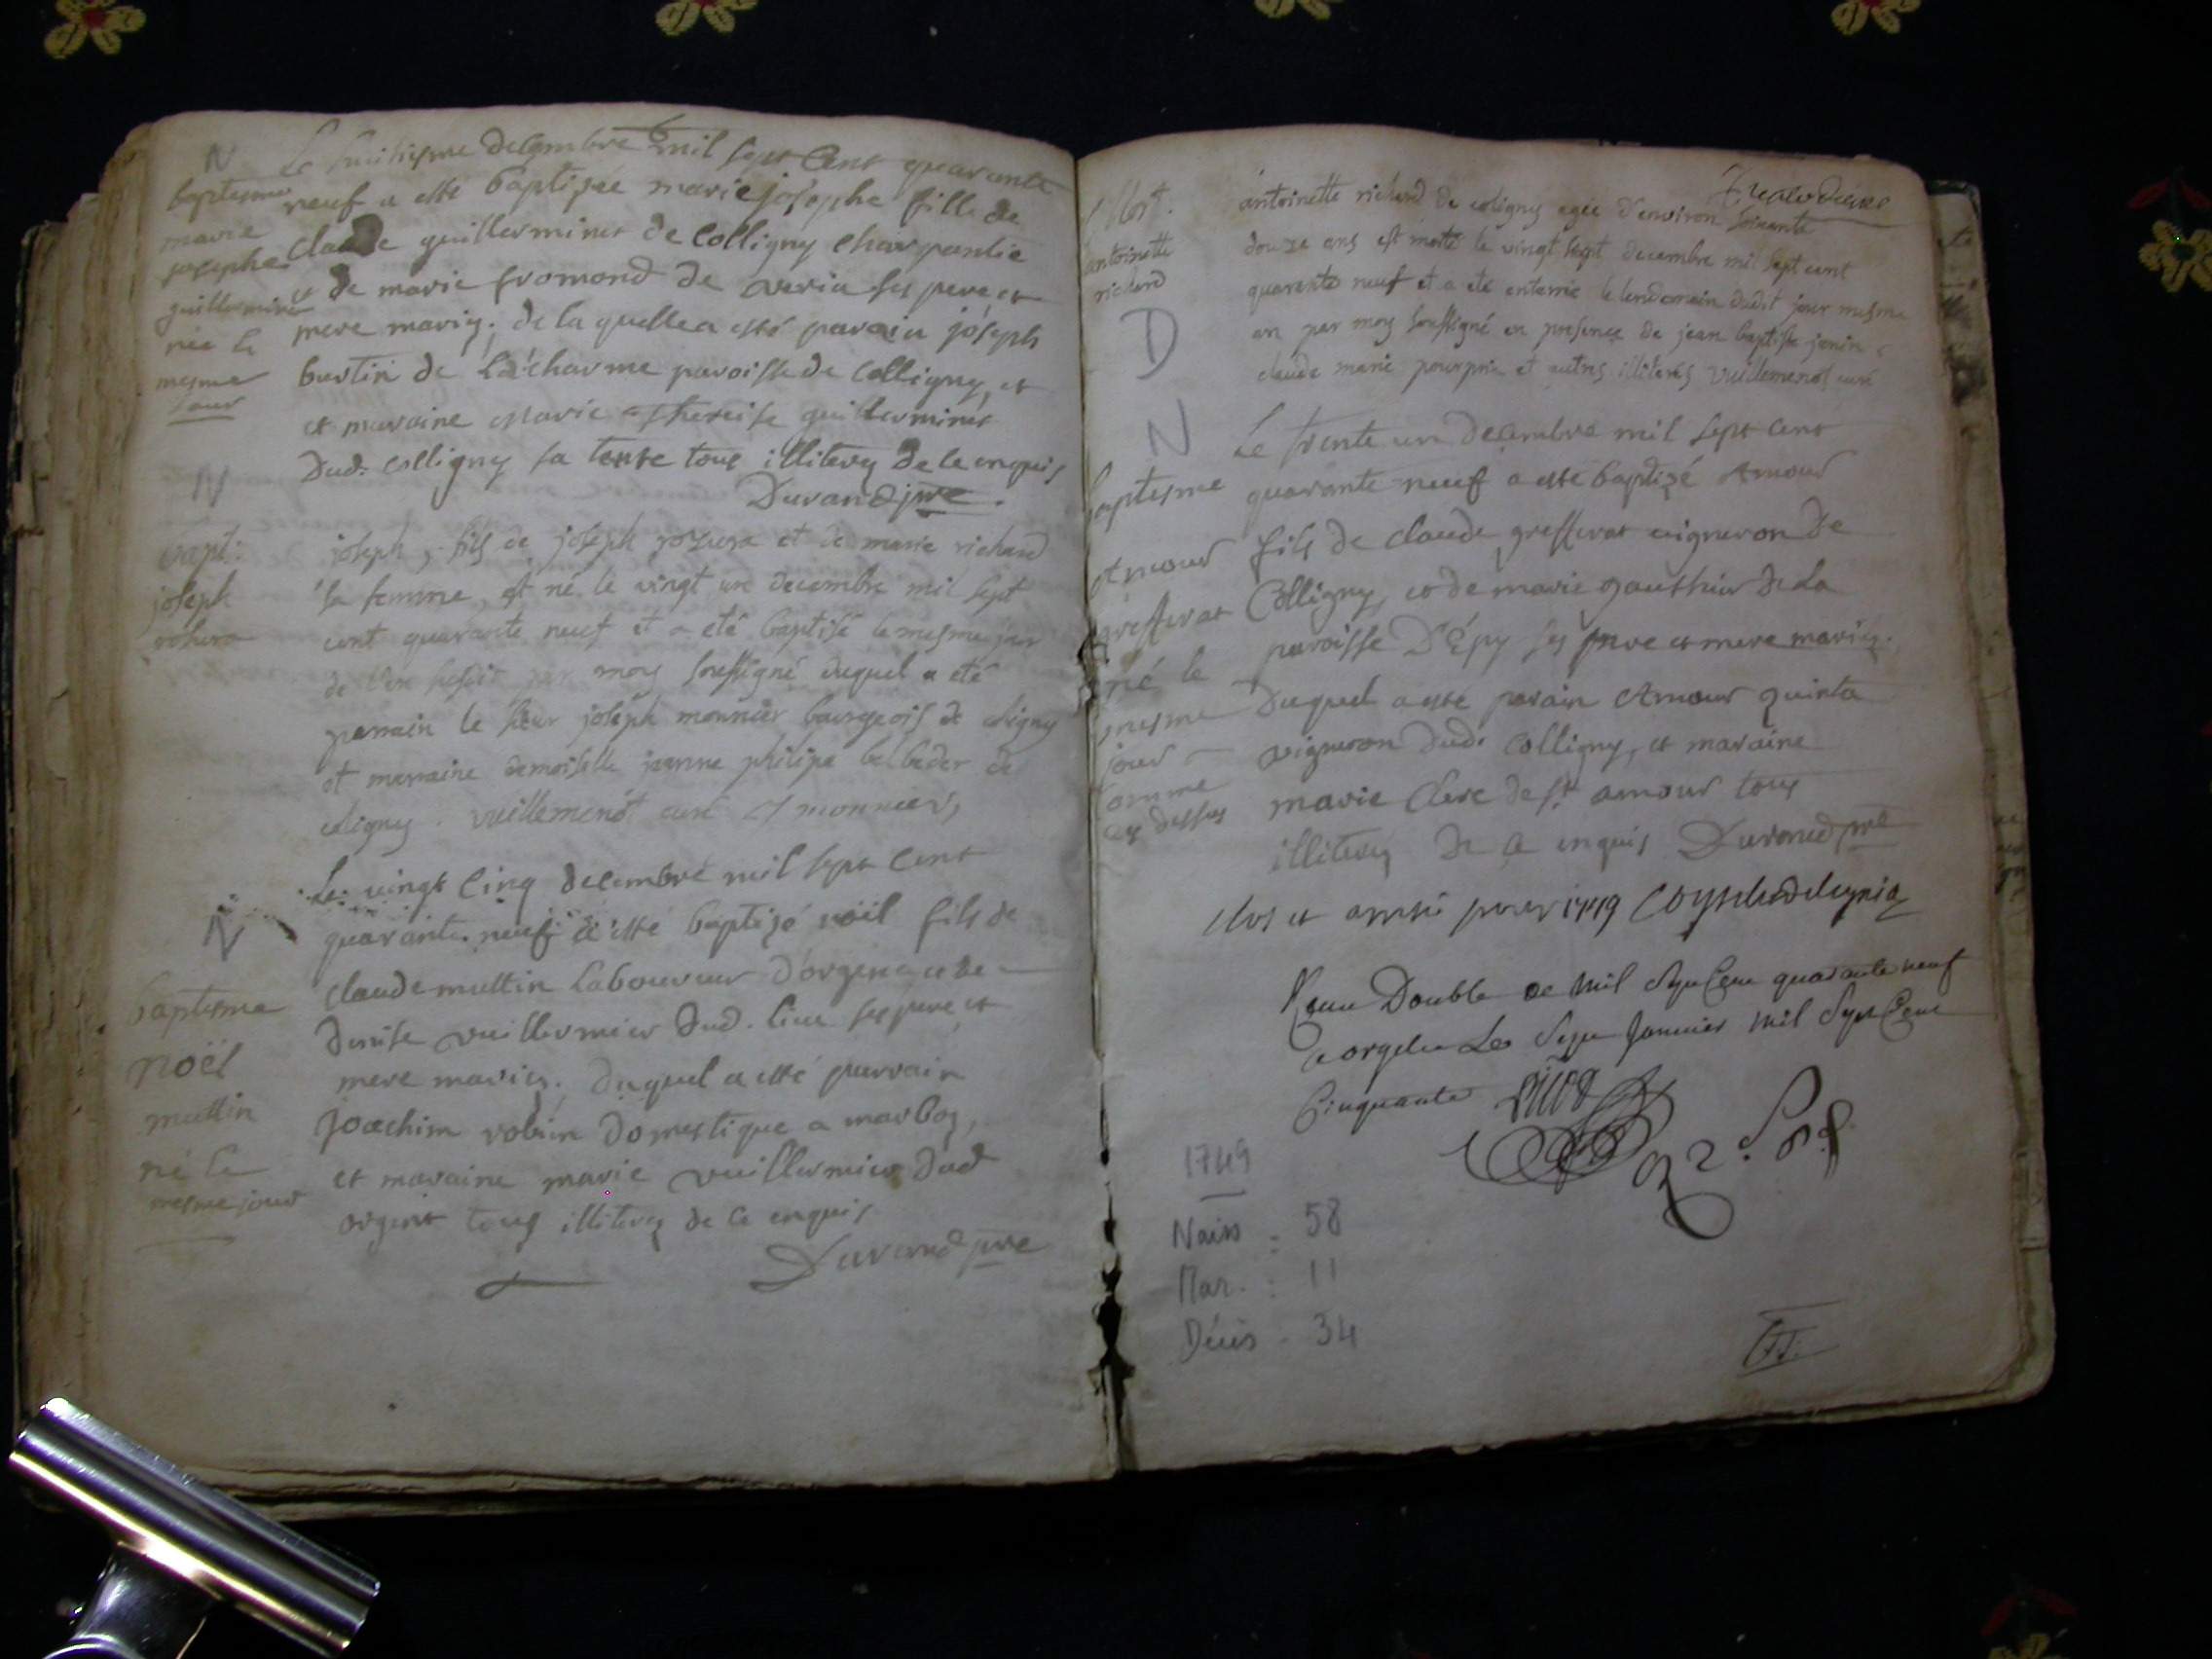 N
baptesme
marie
josephe
guillerminet
née le
mesme
jour
Le huitiesme decembre mil sept cent quarante
neuf a esté baptizée marie josephe fille de
claude guillerminet de Colligny charpantié
et de marie fromond de veria ses pere et
mere mariez; de la quelle a esté parain joseph
burtin de la charme paroisse de Colligny, et
et maraine marie theresse guillerminet
Dud. Colligny sa tente tous illiterez de ce enquis
Durand ptre.
N
bapt:
joseph
joseph, fils de joseph et de marie richard
sa femme, est né le vingt un decembre mil sept
cent quarante neuf et a eté baptisé le mesme jour
de l'an par moy soussigné duquel a eté
parrain le sieur joseph monnier bourgeois de coligny
et marraine demoiselle jeanne philipe de
coligny. vuillemenot curé monnier
N
baptesme
noël
muttin
né le
mesme jour
Le vingt cinq decembre mil sept cent
quarante neuf a esté baptizé noël fils de
claude muttin laboureur d'orgent et de
denise vuillermier dud. lieu ses pere et
mere mariez; duquel a esté parrain
joachim robin domestique a marboz,
et maraine marie vuillermier dud
orgent tous illiterez de ce enquis
Durand ptre
Mort.
antoinette
richard
D
antoinette richard de coligny agée d'environ soixante
douze ans est morte le vingt sept decembre mil sept cent
quarante neuf et a eté enterrée le lendemain dudit jour mesme
an par moy soussigné en presence de jean baptiste janin
claude marie pourprix et autres illiterés vuillemenot curé
N
baptesme
Amour
grefferat
né le
mesme
jour
comme
cy dessus
Le trente un decembre mil sept cent
quarante neuf a esté baptizé Amour
fils de claude grefferat vigneron de
Colligny, et de marie gauthier de la
paroisse D'Épy ses pere et mere mariez.
Duquel a esté parain Amour quinta
vigneron dud. Colligny, et maraine
marie Clerc de st amour tous
illiterez de ce enquis Durand ptre
Clos et arresté pour 1749
Receu Double de mil Sept Cent quarante neuf
a orgelet Le Sept Janvier mil Sept Cent
Cinquante
1749
Naiss : 58
Mar. : 11
Décès : 34